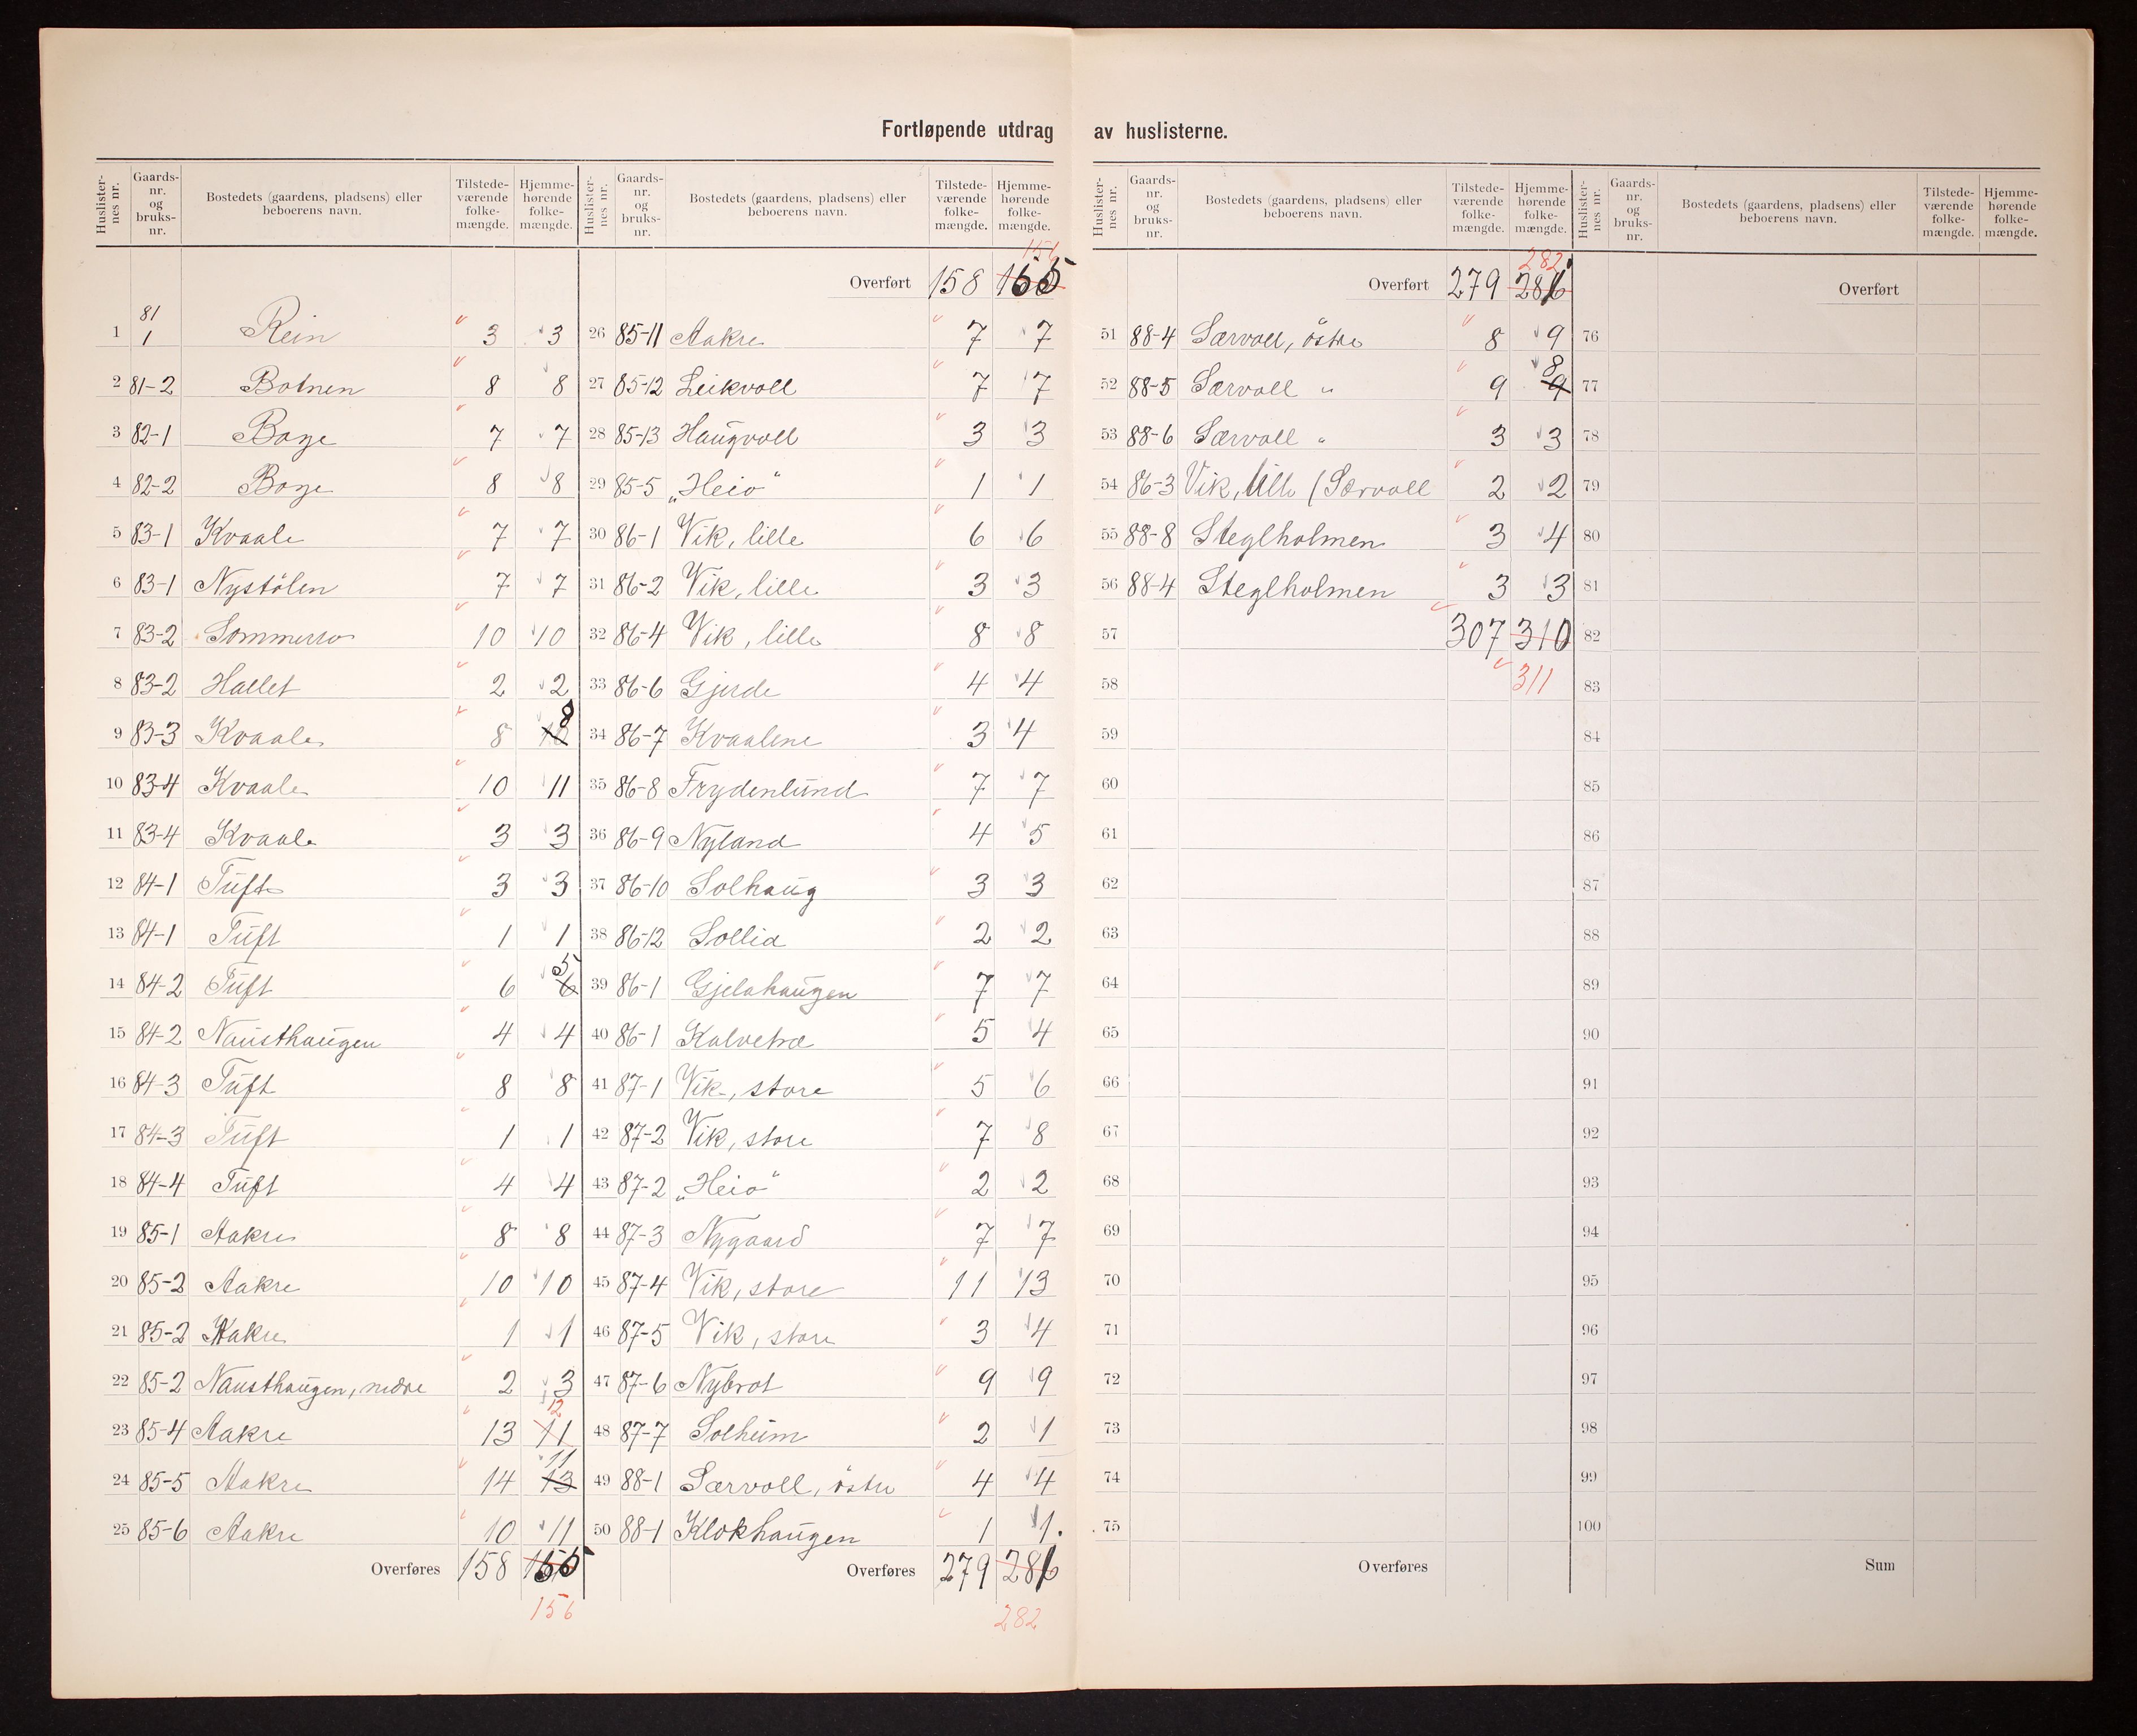 Fortløpende utdrag av huslisterne.
Huslisternes nr. Gaardsnr. og bruksnr. Bostedets (gaardens, pladsens) eller beboerens navn. Tilstedeværende folkemængde. Hjemmehørende folkemængde.
81
1 1 Rein 3 3
2 81-2 Botnen 8 8
3 82-1 Boge 7 7
4 82-2 Boge 8 8
5 83-1 Kvaale 7 7
6 83-1 Nystölen 7 7
7 83-2 Sommerro 10 10
8 83-2 Hallet 2 2
9 83-3 Kvaale 8 8
10 83-4 Kvaale 10 11
11 83-4 Kvaale 3 3
12 84-1 Tuft 3 3
13 84-1 Tuft 1 1
14 84-2 Tuft 6 6 5
15 84-2 Nausthaugen 4 4
16 84-3 Tuft 8 8
17 84-3 Tuft 1 1
18 84-4 Tuft 4 4
19 85-1 Aakre 8 8
20 85-2 Aakre 10 10
21 85-2 Aakre 1 1
22 85-2 Nausthaugen, nedre 2 3
23 85-4 Aakre 13 11 12
24 85-5 Aakre 14 13 11
25 85-6 Aakre 10 11
Overføres 158 155
156
Huslisternes nr. Gaardsnr. og bruksnr. Bostedets (gaardens, pladsens) eller beboerens navn. Tilstedeværende folkemængde. Hjemmehørende folkemængde.
156
Overført 158 155
26 85-11 Aakre 7 7
27 85-12 Leikvoll 7 7
28 85-13 Haugvoll 3 3
29 85-5 „Heio" 1 1
30 86-1 Vik, lille 6 6
31 86-2 Vik, lille 3 3
32 86-4 Vik, lille 8 8
33 86-6 Gjerde 4 4
34 86-7 Kvaalene 3 4
35 86-8 Frydenlund 7 7
36 86-9 Nyland 4 5
37 86-10 Solhaug 3 3
38 86-12 Sollid 2 2
39 86-1 Gjelahaugen 7 7
40 86-1 Kalvetræ 5 4
41 87-1 Vik, store 5 6
42 87-2 Vik, store 7 8
43 87-2 „Heio" 2 2
44 87-3 Nygaard 7 7
45 87-4 Vik, store 11 13
46 87-5 Vik, store 3 4
47 87-6 Nybrot 9 9
48 87-7 Solheim 2 1
49 88-1 Særvoll, östre 4 4
50 88-1 Klokhaugen 1 1.
Overføres 279 281
282
Huslisternes nr. Gaardsnr. og bruksnr. Bostedets (gaardens, pladsens) eller beboerens navn. Tilstedeværende folkemængde. Hjemmehørende folkemængde.
282
Overført 279 281
51 88-4 Særvoll, östre 8 9
52 88-5 Særvoll " 9 9 8
53 88-6 Særvoll " 3 3
54 86-3 Vik, lille (Særvoll 2 2
55 88-8 Steglholmen 3 4
56 88-4 Steglholmen 3 3
57 307 310
58 311
59
60
61
62
63
64
65
66
67
68
69
70
71
72
73
74
75
Overføres
Huslisternes nr. Gaardsnr. og bruksnr. Bostedets (gaardens, pladsens) eller beboerens navn. Tilstedeværende folkemængde. Hjemmehørende folkemængde.
Overført
76
77
78
79
80
81
82
83
84
85
86
87
88
89
90
91
92
93
94
95
96
97
98
99
100
Sum